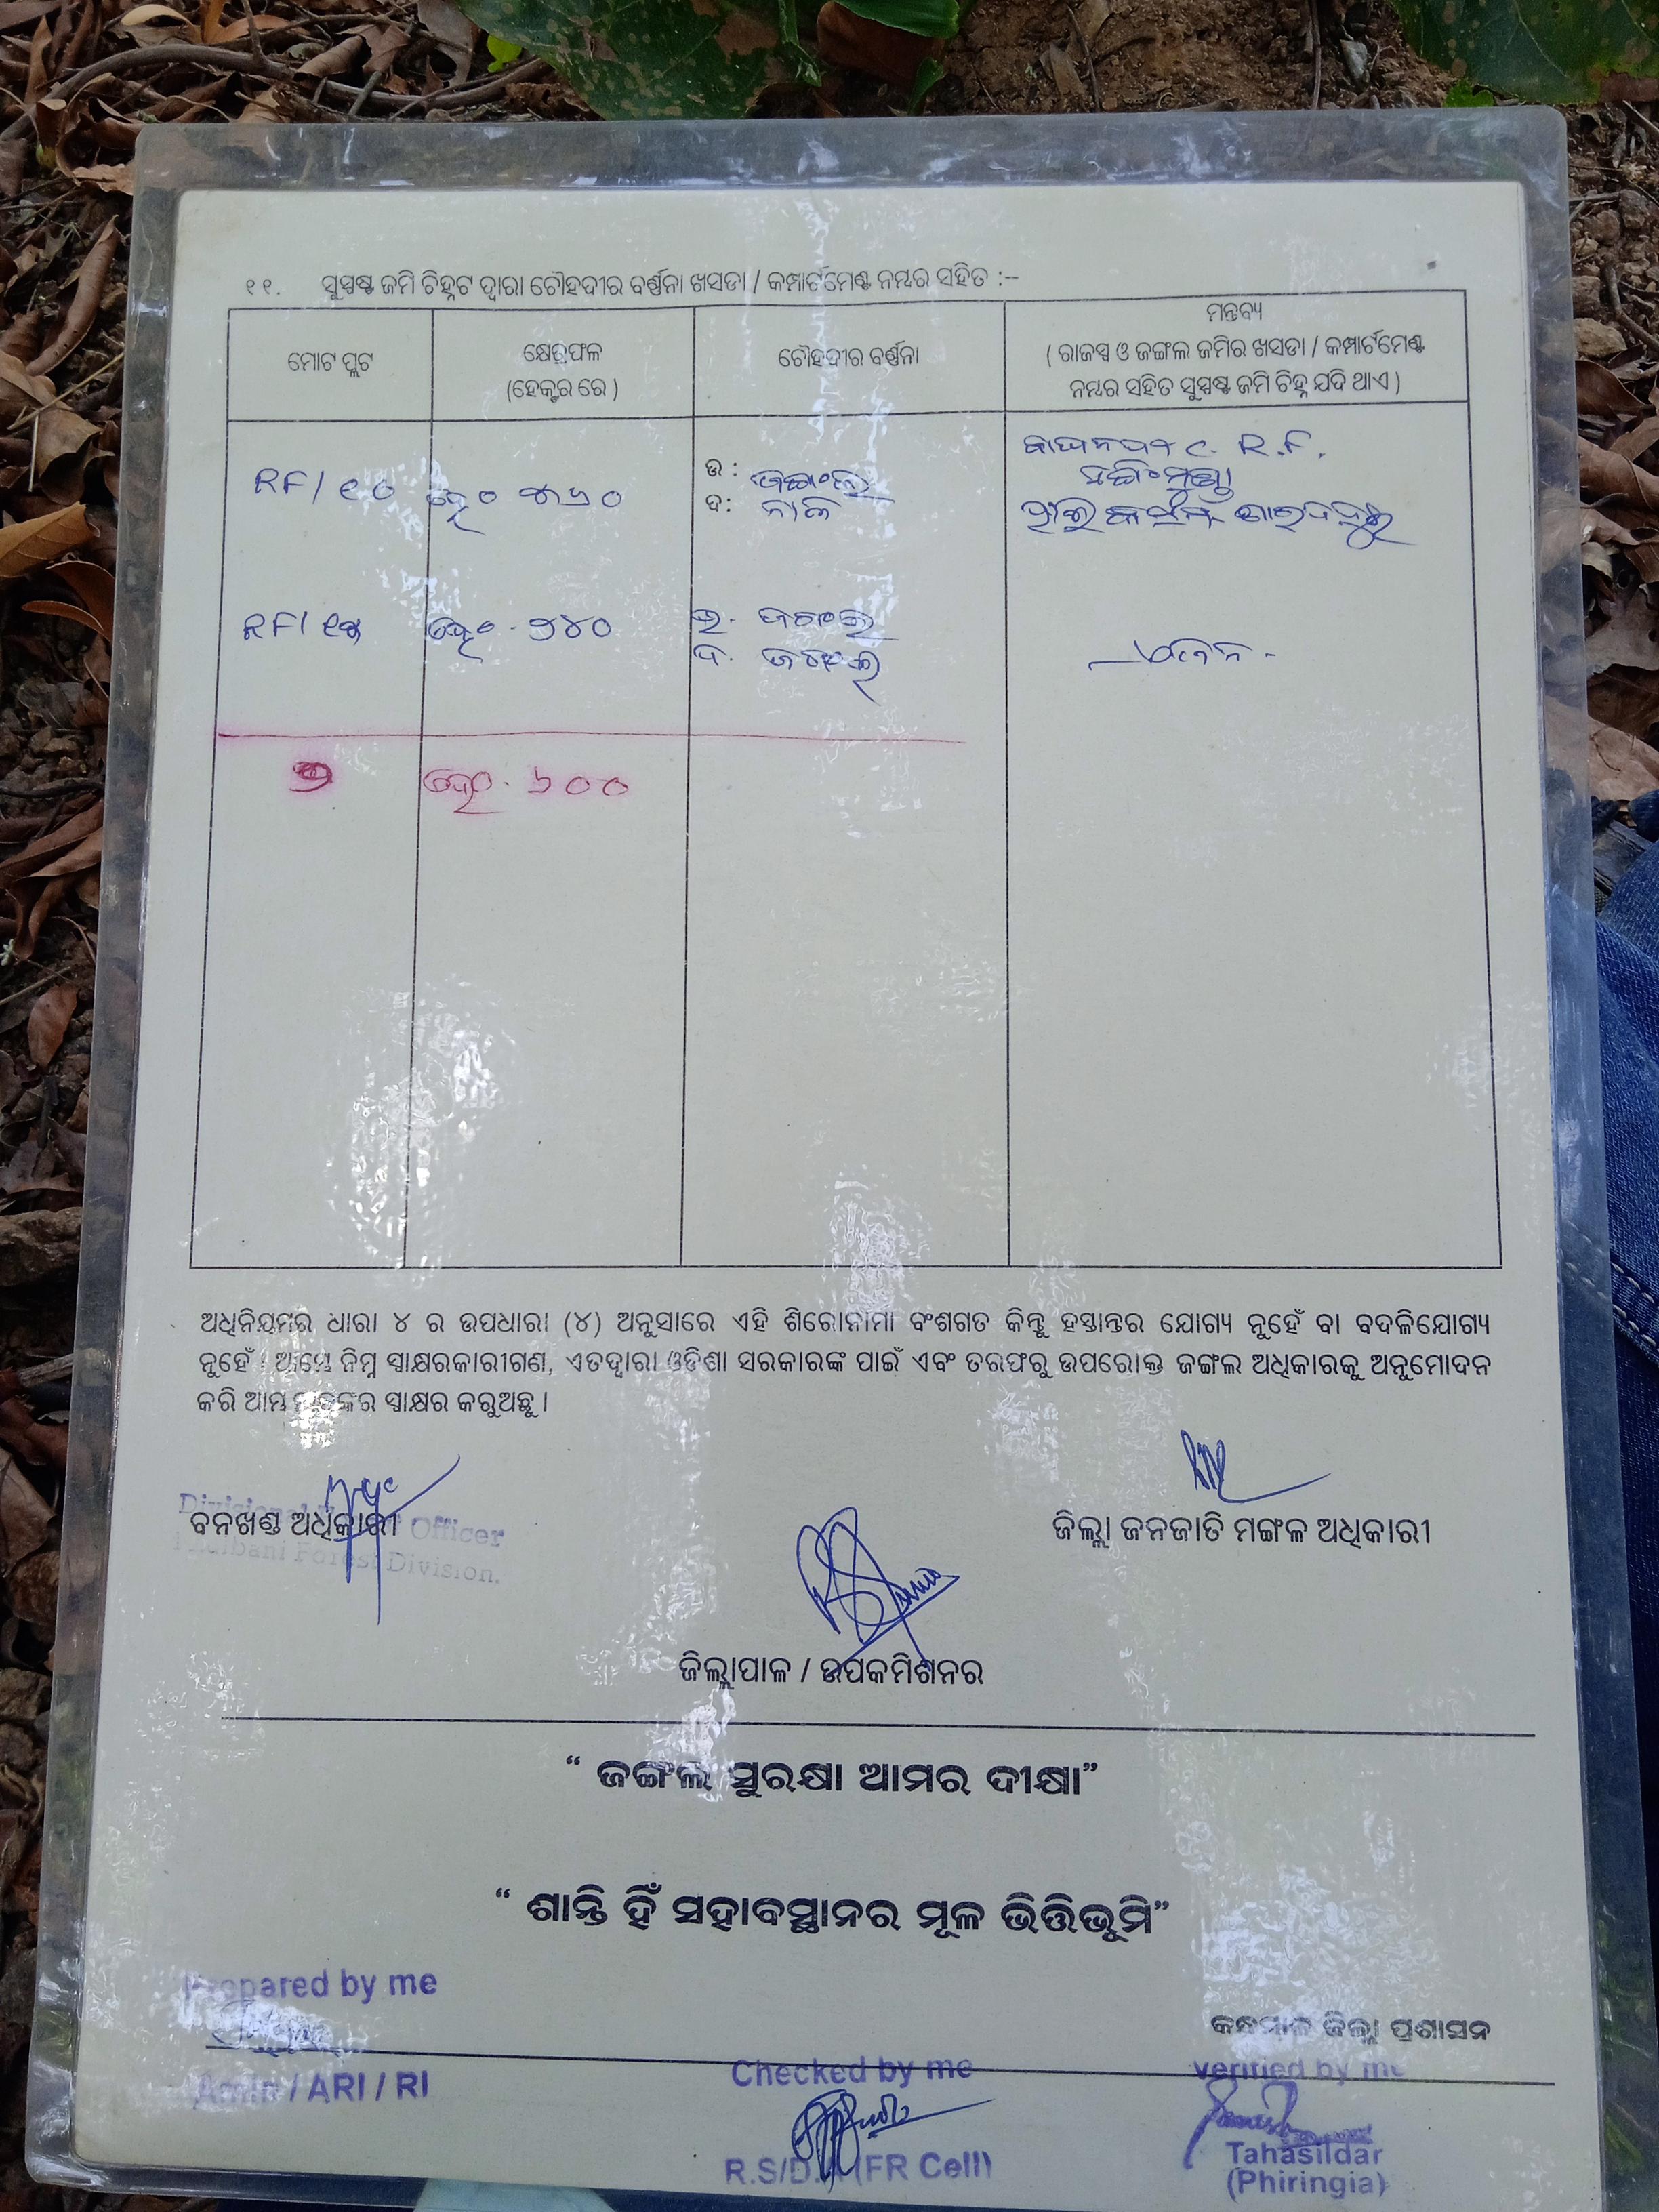 ୧୧. ସୁସ୍ପଷ୍ଟ ଜମି ଚିହ୍ନଟ ଦ୍ୱାରା ଚୌହଦ୍ଦୀର ବର୍ଣ୍ଣନା ଖସଡା / କମ୍ପାର୍ଟମେଣ୍ଟ ନମ୍ବର ସହିତ :–
ମୋଟ ପ୍ଲଟ
କ୍ଷେତ୍ରଫଳ
(ହେକ୍ଟର ରେ )
ଚୌହଦ୍ଦୀର ବର୍ଣ୍ଣନା
ମନ୍ତବ୍ୟ
( ରାଜସ୍ୱ ଓ ଜଙ୍ଗଲ ଜମିର ଖସଡା / କମ୍ପାର୍ଟମେଣ୍ଟ
ନମ୍ବର ସହିତ ସୁସ୍ପଷ୍ଟ ଜମି ଚିହ୍ନ ଯଦି ଥାଏ )
RF/ ୧୦
ଉ :
ଦ :
R.F.
RF/
ହେ୦ . ୨୪୦
ଉ.
ଦ.
୨ ହେ୦ . ୬୦୦
ଅଧିନିୟମର ଧାରା ୪ ର ଉପଧାରା (୪) ଅନୁସାରେ ଏହି ଶିରୋନାମା ବଂଶଗତ କିନ୍ତୁ ହସ୍ତାନ୍ତର ଯୋଗ୍ୟ ନୁହେଁ ବା ବଦଳିଯୋଗ୍ୟ
ନୁହେଁ । ଆମ୍ଭେ ନିମ୍ନ ସ୍ୱାକ୍ଷରକାରୀଗଣ, ଏତଦ୍ୱାରା ଓଡିଶା ସରକାରଙ୍କ ପାଇଁ ଏବଂ ତରଫରୁ ଉପରୋକ୍ତ ଜଙ୍ଗଲ ଅଧିକାରକୁ ଅନୁମୋଦନ
କରି ଆମ୍ଭ ସ୍ୱାକ୍ଷର କରୁଅଛୁ ।
Divisional Officer
ବନଖଣ୍ଡ ଅଧିକାରୀ
Forest Division.
ଜିଲ୍ଲା ଜନଜାତି ମଙ୍ଗଳ ଅଧିକାରୀ
ଜିଲ୍ଲାପାଳ / ଉପକମିଶନର
“ ଜଙ୍ଗଲ ସୁରକ୍ଷା ଆମର ଦୀକ୍ଷା”
“ ଶାନ୍ତି ହିଁ ସହାବସ୍ଥାନର ମୂଳ ଭିତ୍ତିଭୂମି”
Prepared by me
Amin / ARI / RI
କନ୍ଧମାଳ ଜିଲ୍ଲା ପ୍ରଶାସନ
Checked by me
(FR Cell)
verified by me
Tahasildar
(Phiringia)